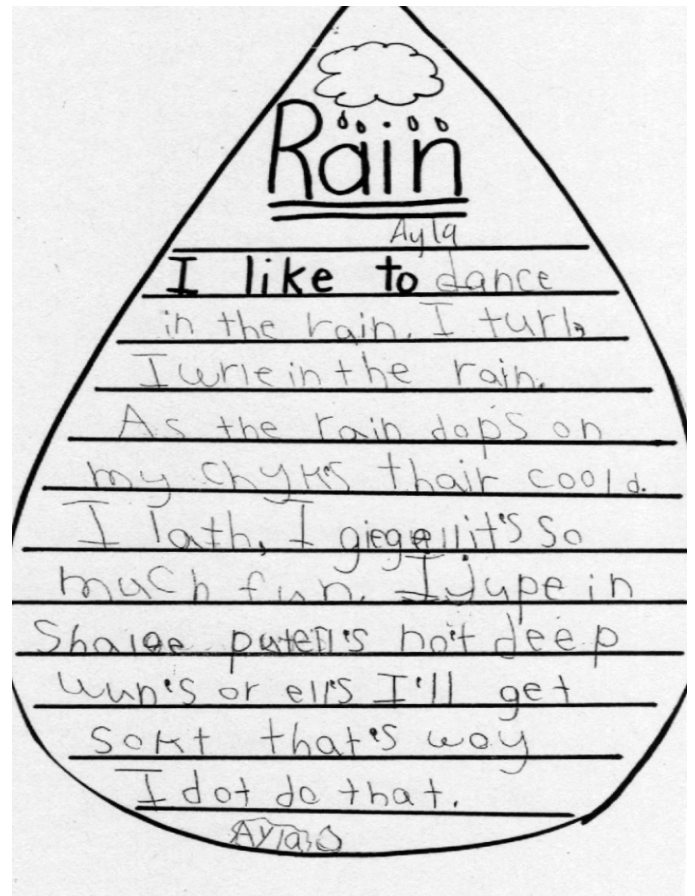 Rain
Ayla
I like to dance
in the rain. I turh,
I wrle in the rain.
As the rain dops on
my chyks thair coold.
I lath, I giegell it's so
much fun. I jupe in
Shaloe putell's not deep
wun's or ell's I'll get
sokt that's way
I dot do that.
Ayla